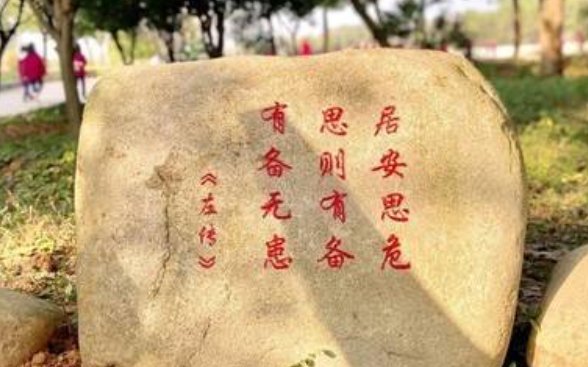 居安思危
思则有备
有备无患
《左传》